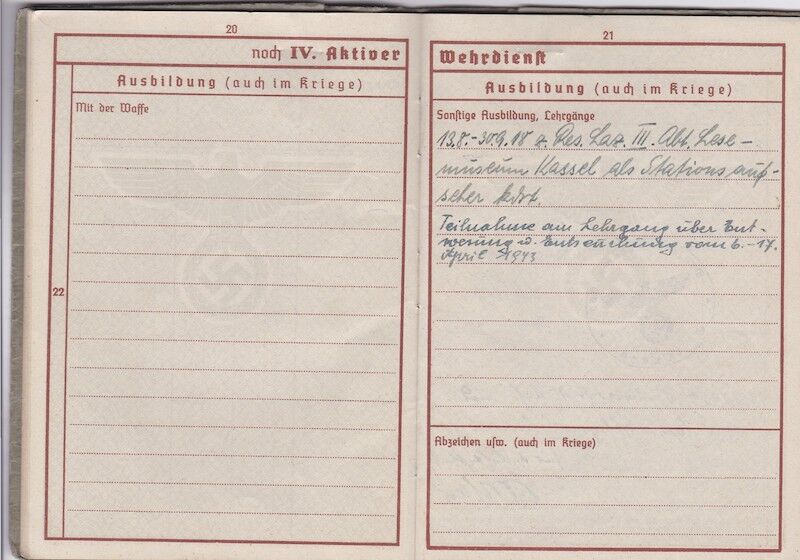 20
noch IV. Aktiver
Ausbildung (auch im Kriege)
Mit der Waffe
22
21
Wehrdienst
Ausbildung (auch im Kriege)
Sonstige Ausbildung, Lehrgänge
13.8.-30.9.18 z. Res. Laz. III. Abt. Lese-
museum Kassel als Stationsauf-
seher kdrt.
Teilnahme am Lehrgang über Ent-
wesung u. Entseuchung vom 6.-17.
April 1943
Abzeichen usw. (auch im Kriege)